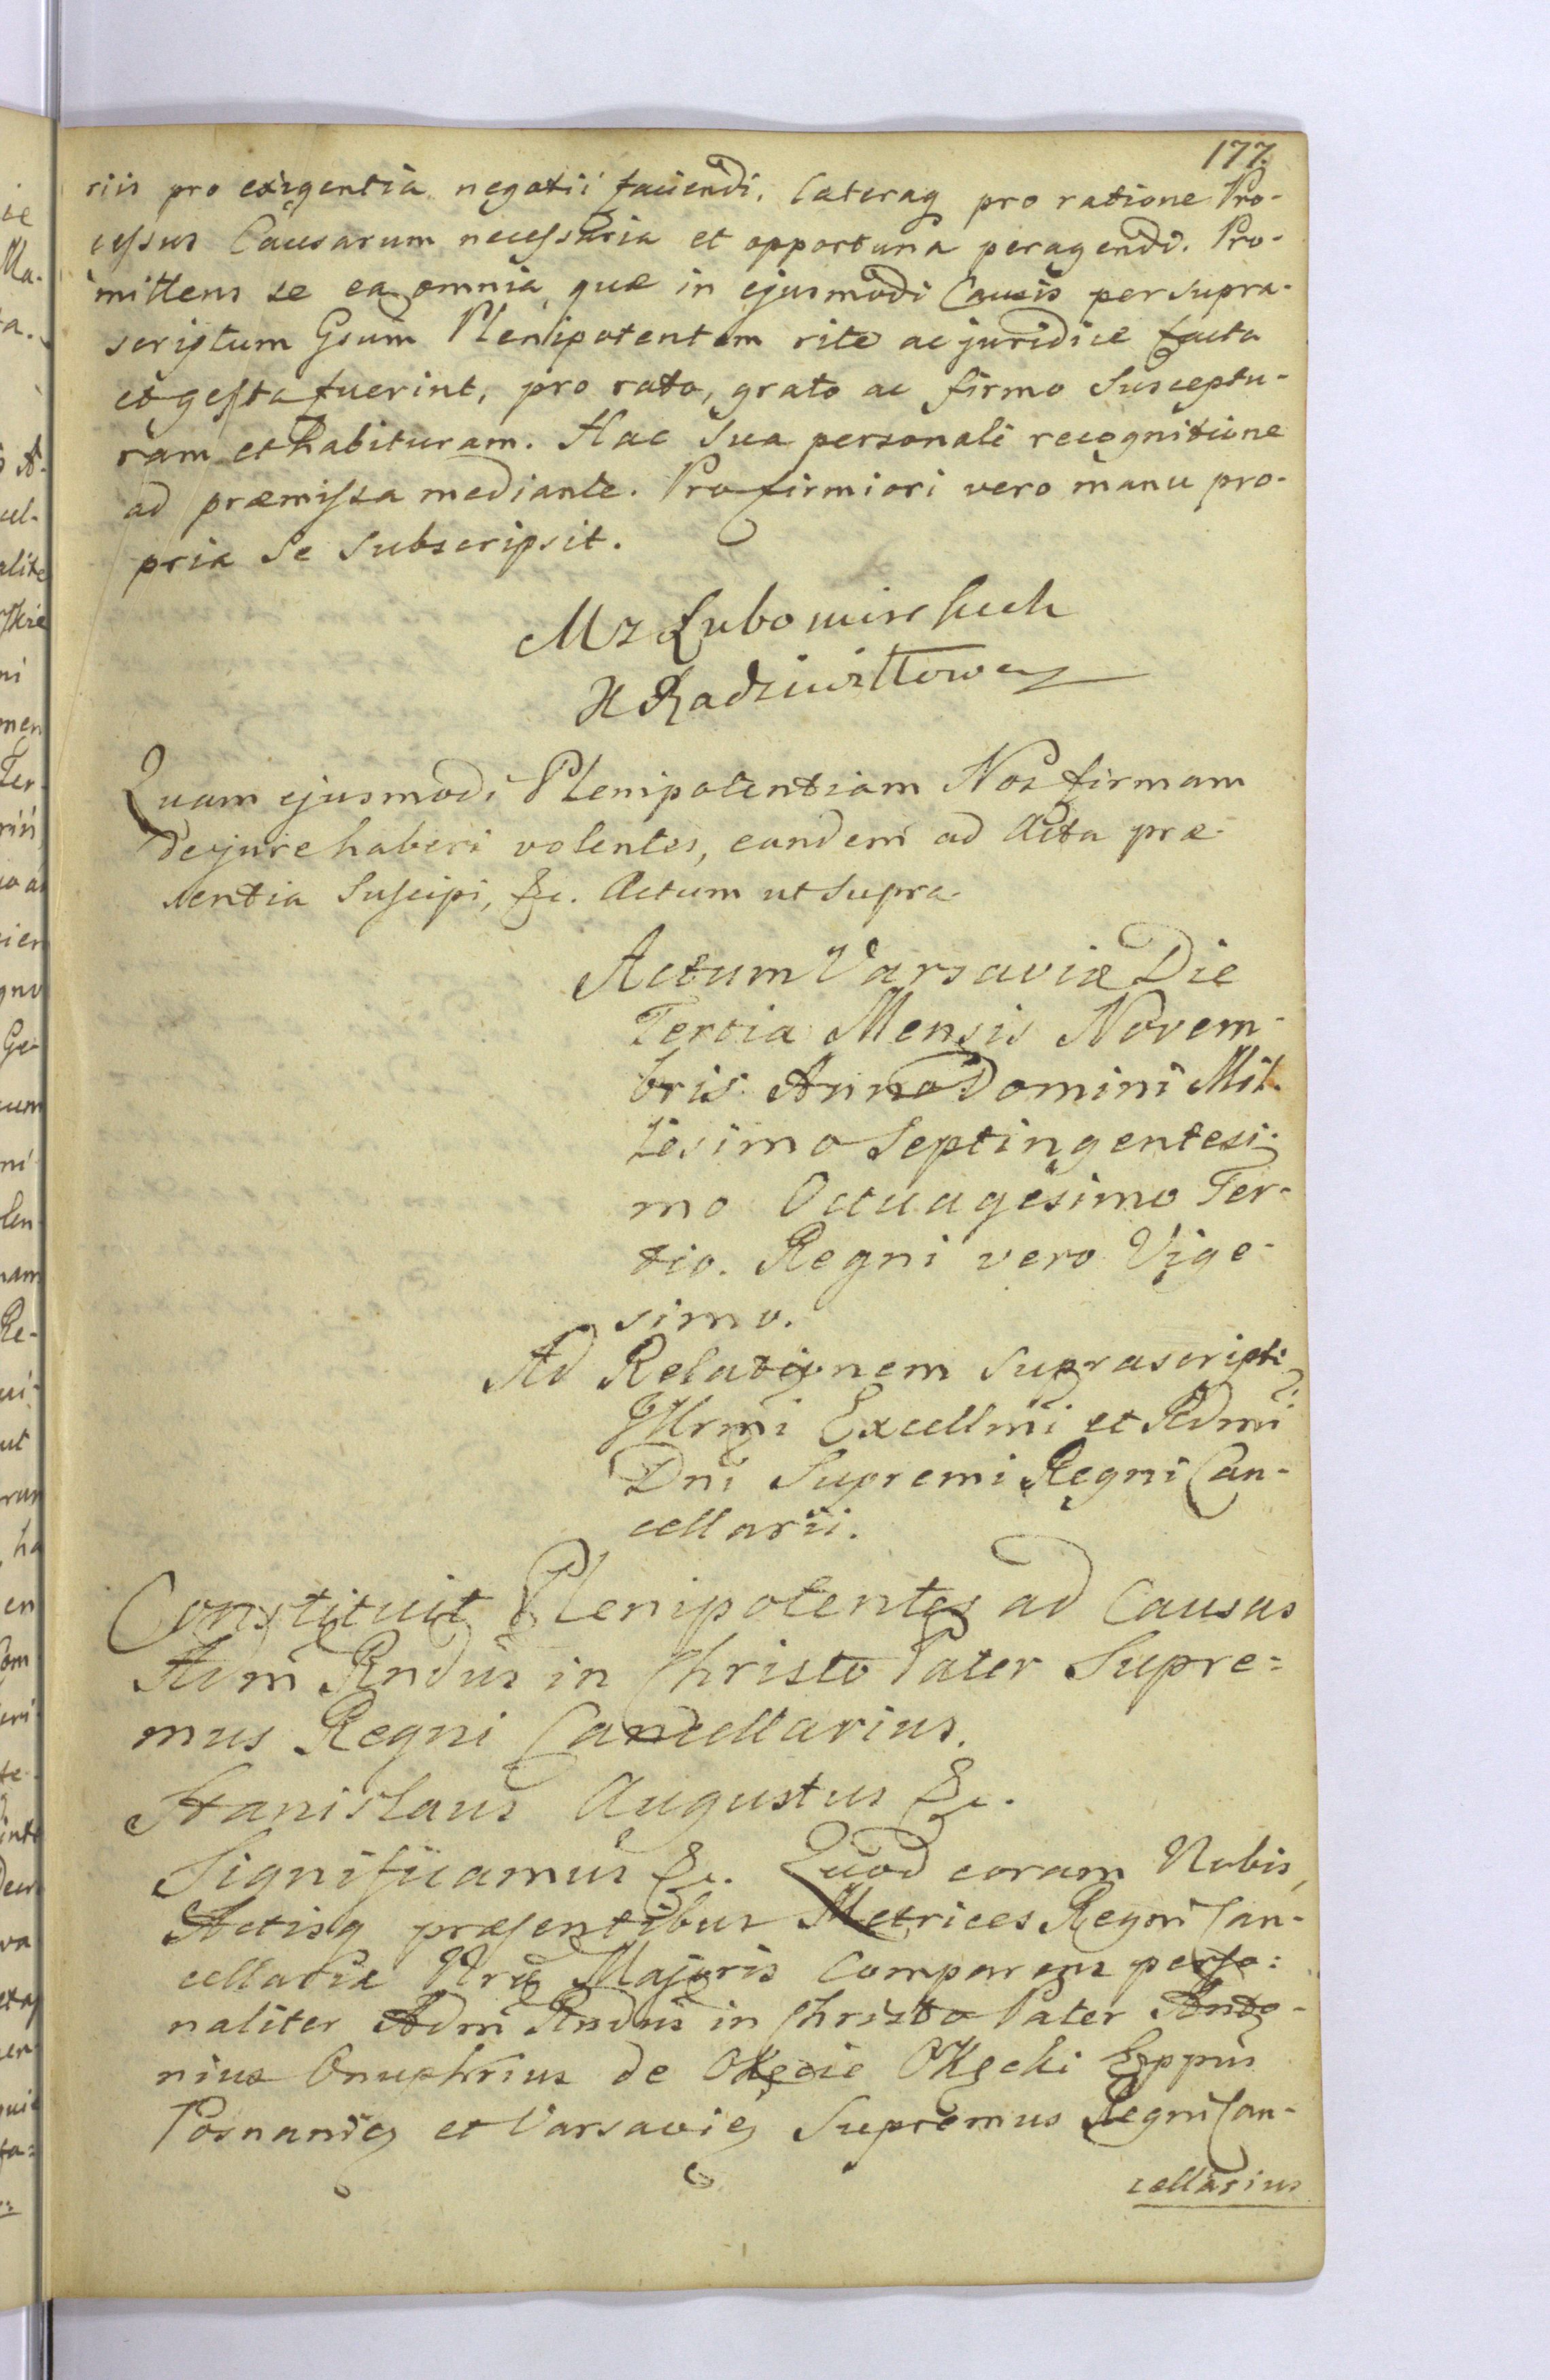 177.
riis pro exigentia negotii faciendi. Caeteraq pro ratione Pro-
cessus Causarum necessaria et opportuna peragendi. Pro-
mittens se ea omnia quæ in ejusmodi Causis per supra-
scriptum Gsum Plenipotentem rite ac juridice facta
et gesta fuerint, pro rato, grato ac firmo Susceptu-
ram et habituram. Hac Sua personali recognitione
ad præmissa mediante. Pro firmiori vero manu pro-
pria Se Subscripsit.
Mz Lubomirskich
X Radziwiłłowa
Quam ejusmodi Plenipotentiam Nos firmam
de jure haberi volentes, eandem ad Acta præ-
sentia Suscipi, &c. Actum ut Supra
Actum Varsaviæ Die
Tertia Mensis Novem-
bris Anno Domini Mil-
lesimo Septingentesi-
mo Octuagesimo Ter-
tio. Regni vero Vige-
simo.
Ad Relationem Suprascripti
Illrmi Excellmi et Rdmi
Dni Supremi Regni Can-
cellarii.
Constituit Plenipotentes ad Causas
Adm Rndus in Christo Pater Supre=
mus Regni Cancellarius.
Stanislaus Augustus &c.
Significamus &c. Quod coram Nobis,
Actisq præsentibus Metrices Regni Can-
cellariæ Nræ Majoris Comparens perso:
naliter Adm Rndus in Christo Pater Anto-
nius Onuphrius de Okęcie Okęcki Eppus
Posnanię et Varsavię Supremus Regni Can-
cellarius